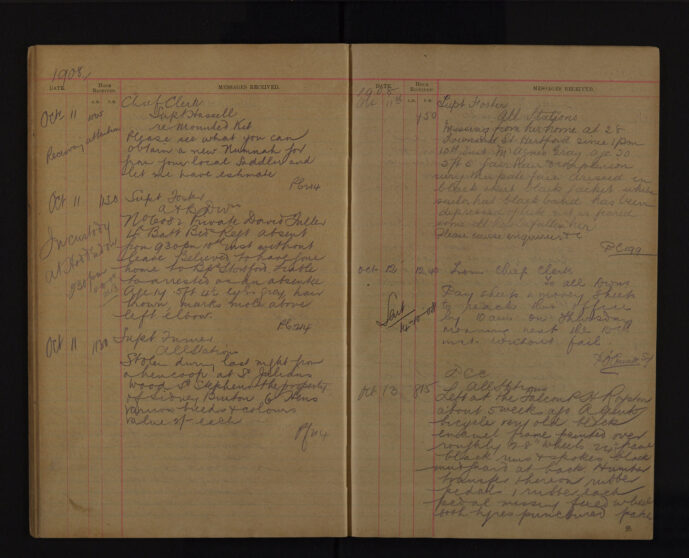 1908
DATE. HOUR RECEIVED. MESSAGES RECEIVED.
A.M. P.M.
Oct 11
Chief Clerk
Supt Hassell
re Mounted Kit
Please see what you can
obtain a new Numnah for
from your local Saddler and
let me have estimate
PC 214
Receiving attention
Oct 11 1130 Supt Foster
A & K Divn
No 6082 Private David Fuller
4th Batt Bed Regt absent
from 9.30 pm 10th inst without
leave Believed to have gone
home to Bps Stortford Liable
to arrest as an absentee
Age 17 5ft
hair
brown, marks mole above
left elbow.
PC 214
In custody
at
9.30 pm
Oct 11 1130 Supt Turner
All Stations
Stolen during last night from
a hencoop at St Julians
Wood St Stephens the property
of Sidney Burton 6 Hens
various breeds & colours
value of each
PC 214
DATE. HOUR RECEIVED. MESSAGES RECEIVED.
1908
A.M. P.M.
Oct 11th Supt Foster
450 All Stations
Missing from her home at 28
St Hertford since 1 pm
10th inst Agnes Gray age 30
5ft 6 fair hair fresh complexion
wearing pale face dressed in
black skirt black jacket white
sailor hat black band has been
depressed of late and is feared
some ill has befallen her
Please cause enquiries &c
PC 199
Oct 12 1240 From Chief Clerk
To all Divns
Pay sheets & money sheets
to reach this office
by 10 am on Thursday
morning next the 15th
inst without fail.
Sent
12-10-08
DCC
Oct 13 815 To All Stations
Left at the Falcon PH Royston
about 5 weeks ago A gents
bicycle very old black
enamel frame painted over
roughly 28 wheels 24 frame
black rims & spokes black
mudguard at back Humber
transfer thereon rubber
pedals 1 rubber each
pedal missing fixed wheel
both tyres punctured